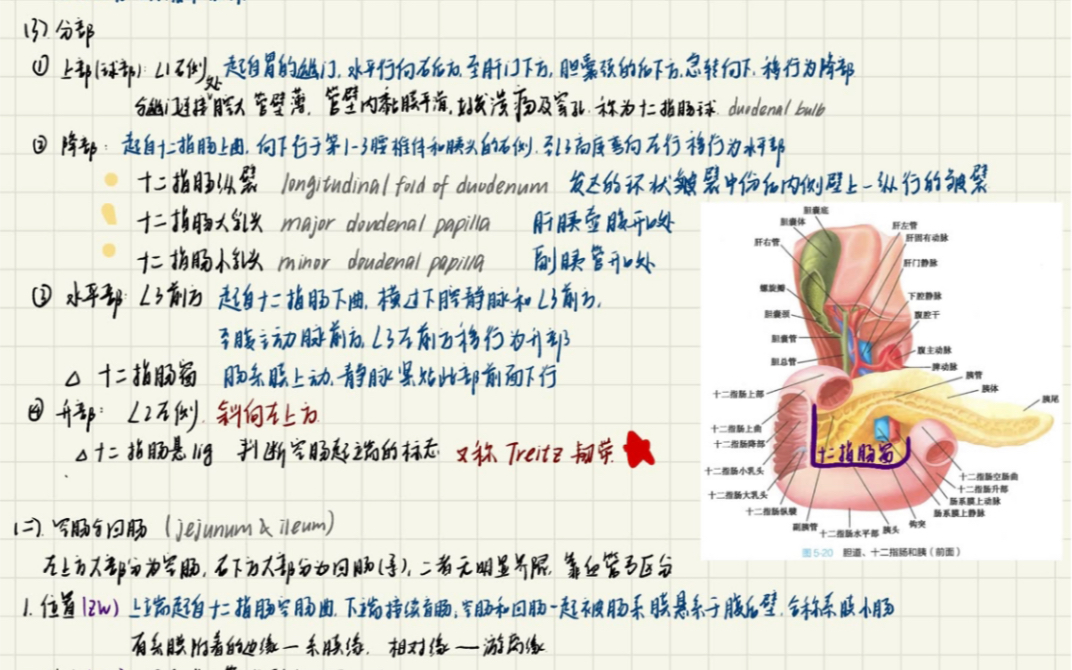 (3) 分部
① 上部(球部): L1右侧 起自胃的幽门, 水平行向右后方, 至肝门下方, 胆囊颈的后下方, 急转向下, 移行为降部
与幽门连接处 腔大 管壁薄, 管壁内黏膜平滑, 好发溃疡及穿孔, 称为十二指肠球 duodenal bulb
② 降部: 起自十二指肠上曲, 向下行于第1-3腰椎体和胰头的右侧, 至L3高度弯向左行 移行为水平部
十二指肠纵襞 longitudinal fold of duodenum 发达的环状皱襞 中份后内侧壁上一纵行的皱襞
十二指肠大乳头 major doudenal papilla 肝胰壶腹开口处
十二指肠小乳头 minor doudenal papilla 副胰管开口处
③ 水平部: L3前方 起自十二指肠下曲, 横过下腔静脉和L3前方,
至腹主动脉前方, L3左前方移行为升部
△ 十二指肠窗 肠系膜上动、静脉紧贴此部前面下行
④ 升部: L2左侧, 斜向左上方
△十二指肠悬lig 判断空肠起端的标志 又称Treitz韧带
(二). 空肠与回肠 (jejunum & ileum)
左上方大部分为空肠, 右下方大部分为回肠, 二者无明显界限, 靠血管弓区分
1. 位置(ZW) 上端起自十二指肠空肠曲, 下端接续盲肠, 空肠和回肠一起被肠系膜悬系于腹后壁, 合称系膜小肠
有系膜附着的边缘—系膜缘, 相对缘—游离缘
胆囊底
胆囊体
肝右管
螺旋瓣
胆囊颈
胆囊管
胆总管
十二指肠上部
十二指肠上曲
十二指肠降部
十二指肠小乳头
十二指肠大乳头
十二指肠纵襞
副胰管
十二指肠水平部
胰头
钩突
肝左管
肝固有动脉
肝门静脉
下腔静脉
腹腔干
腹主动脉
脾动脉
胰管
胰体
胰尾
十二指肠窗
十二指肠空肠曲
十二指肠升部
肠系膜上动脉
肠系膜上静脉
图 5-20 胆道、十二指肠和胰(前面)